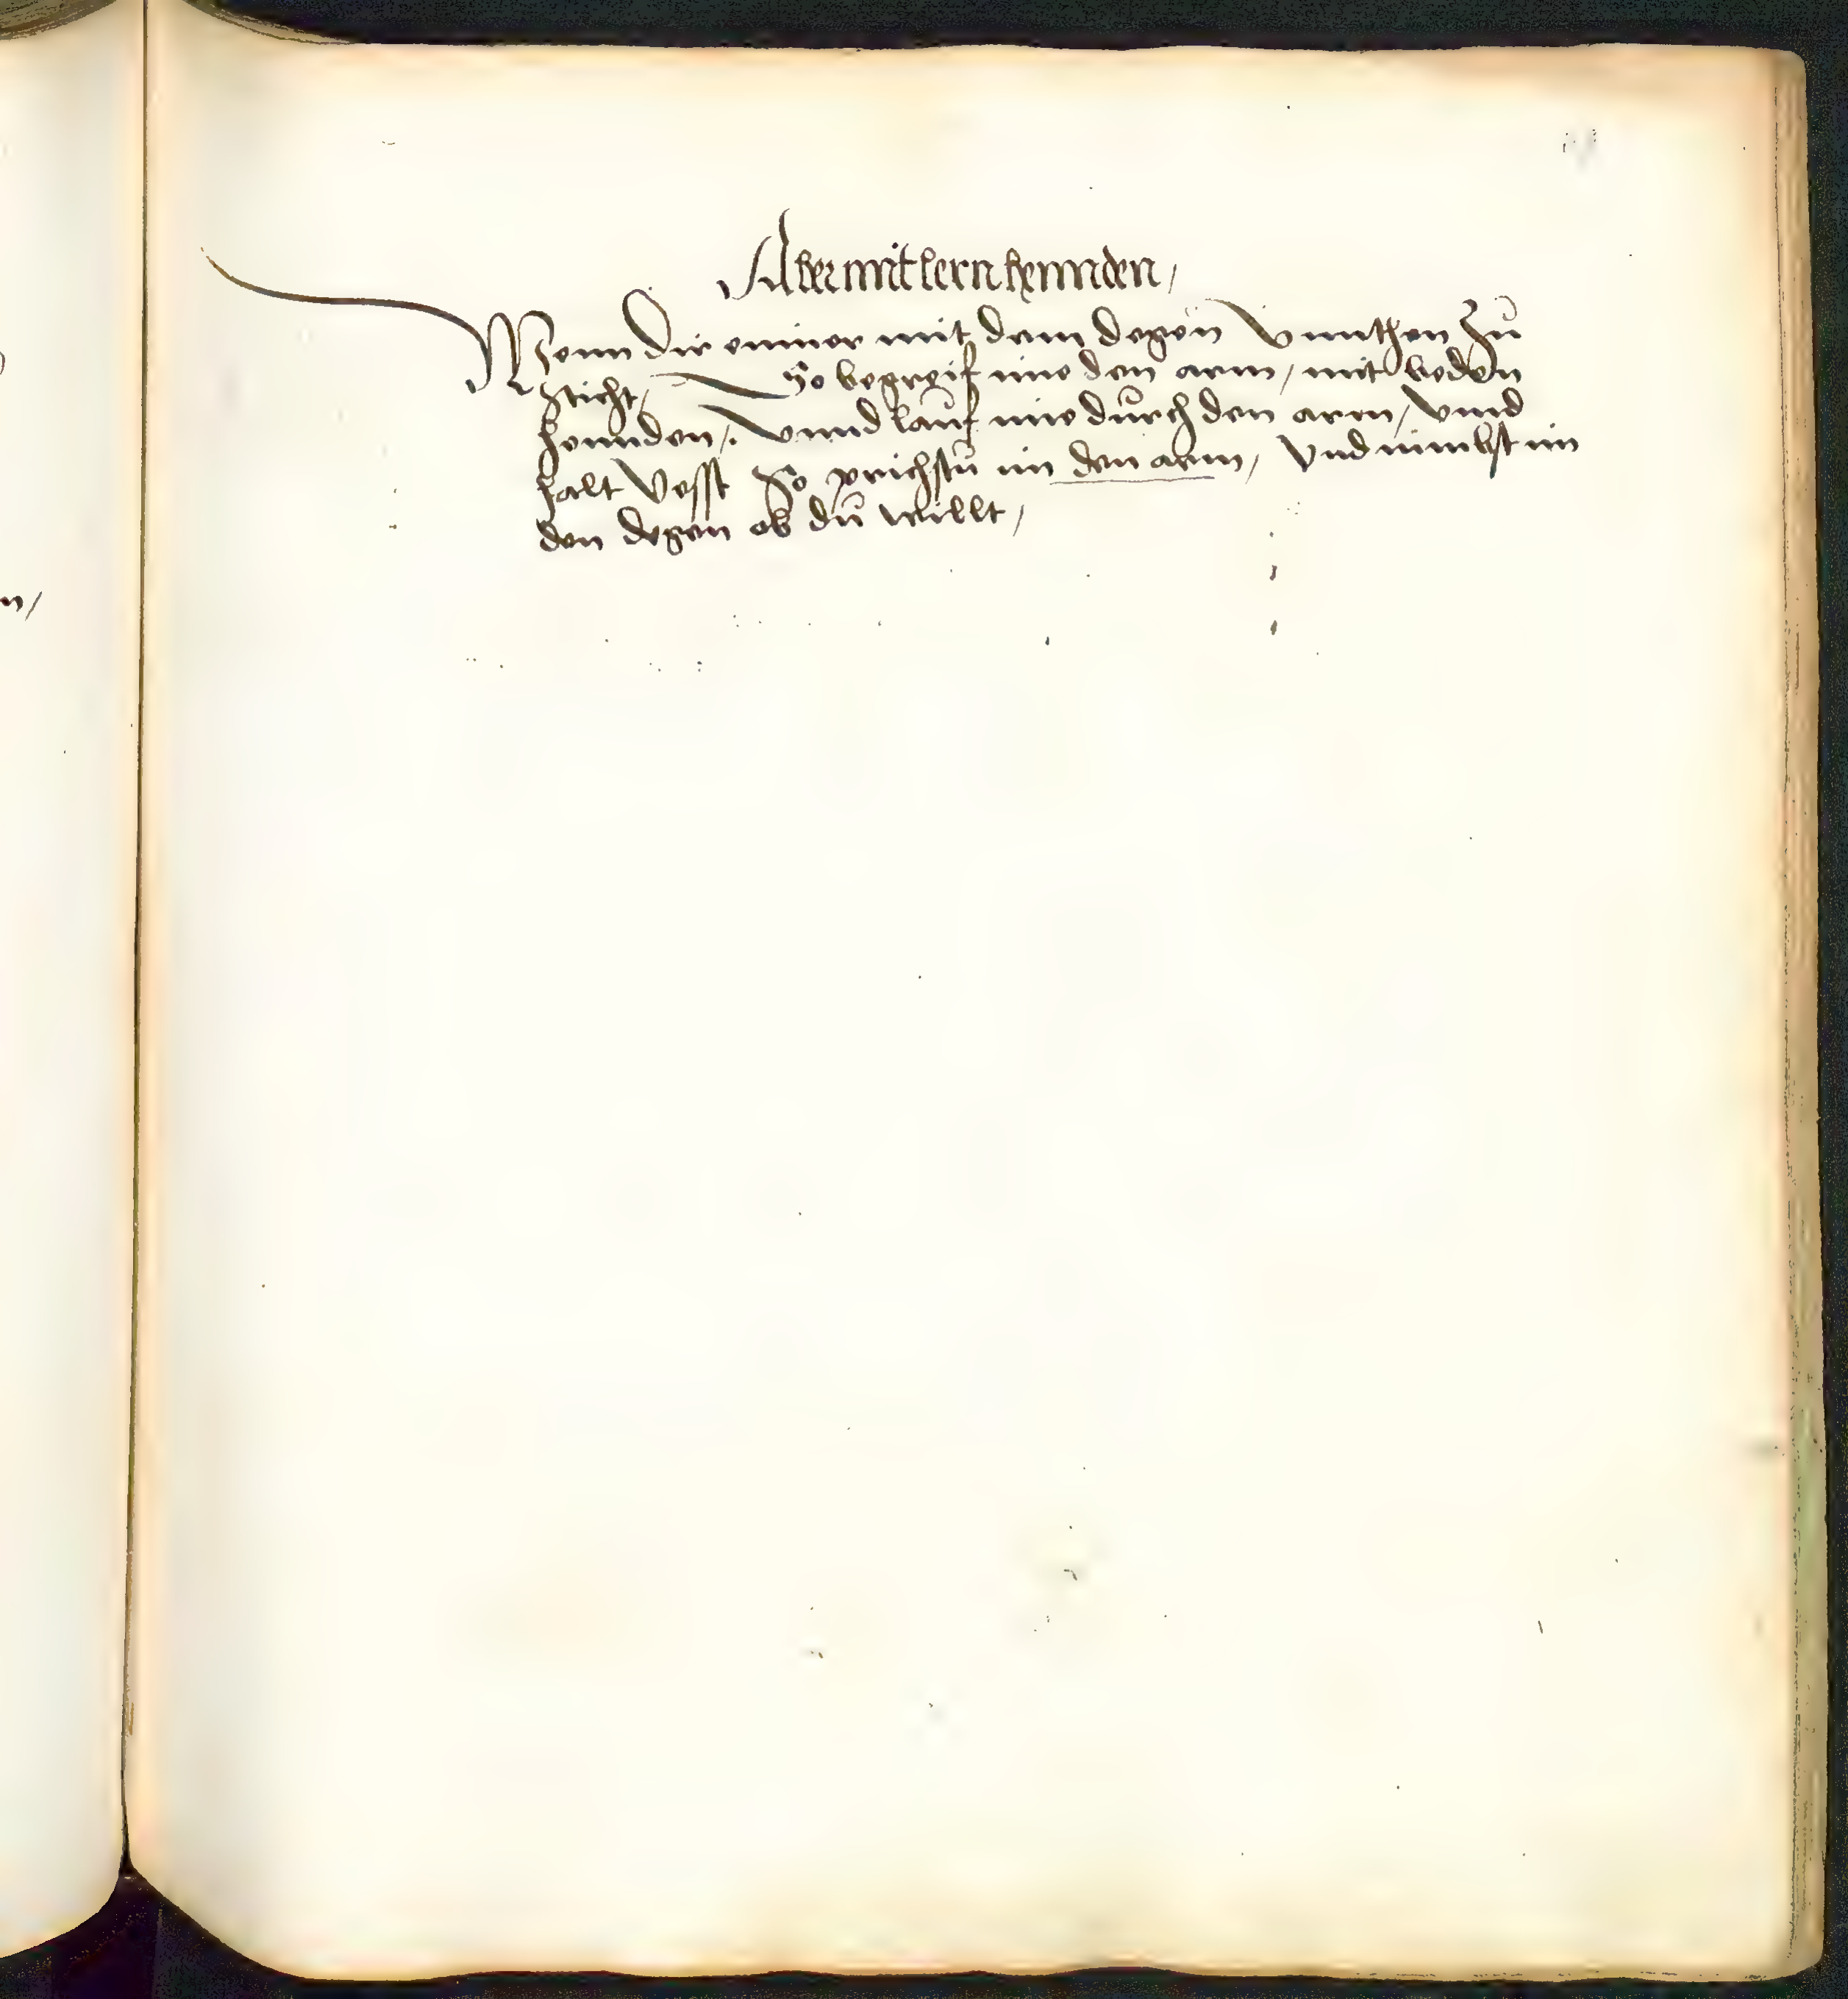 Aber mit lern hennden /
Wenn dir einer mit dem degen Vnnthen Zů
sticht / So begreif ime den arm / mit beden
hennden /. Vnnd laůf ime důrch den arm / Vnnd
halt Vesst So prichstů im den arm / Vnd nimbst im
den degen ob dů willt /
n /